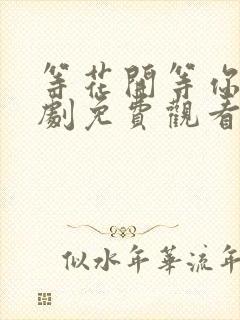 等花開等你
劇免費觀看
似水年華流年